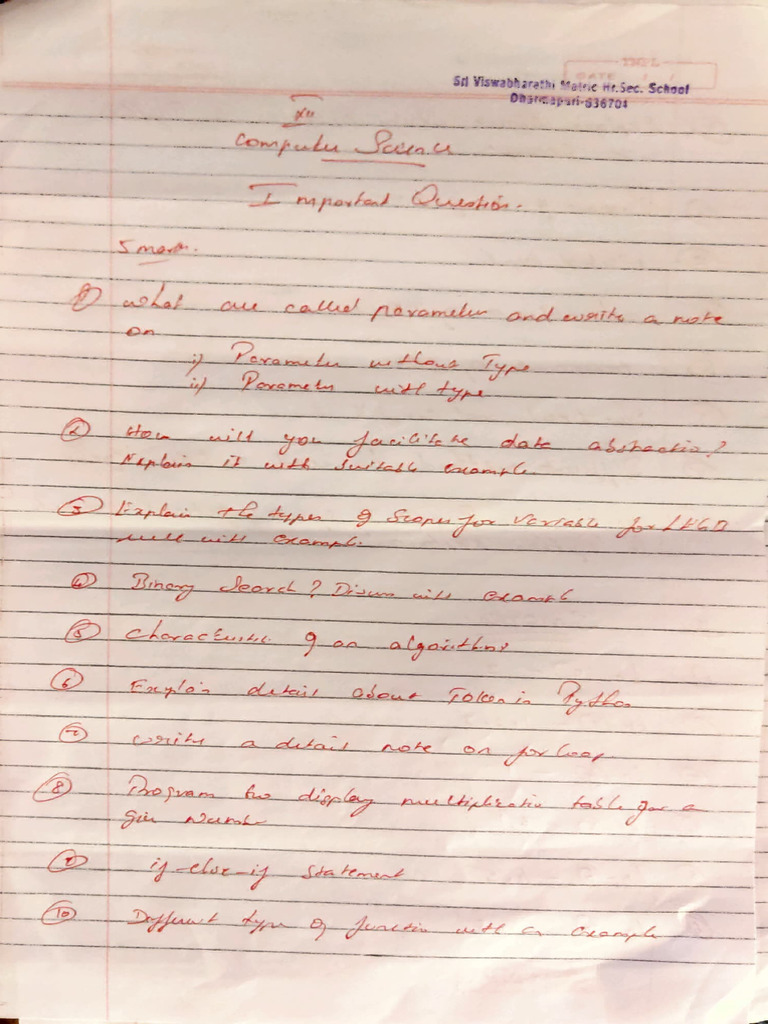 TNPL
DATE / /
Sri Viswabharathi Matric Hr.Sec. School
Dharmapuri-636704
XII
Computer Science
Important Question.
5 mark.
1) What are called parameter and write a note
on
i) Parameter without Type
ii) Parameter with type
2) How will you facilitate data abstraction?
Explain it with suitable example
3) Explain the types of scopes for variable for LEGB
rule with example.
4) Binary Search? Discuss with example
5) Characteristic of an algorithms
6) Explain detail about Token in Python
7) Write a detail note on for loop
8) Program to display multiplication table for a
give number
9) if-else-if statement
10) Different type of function with an example